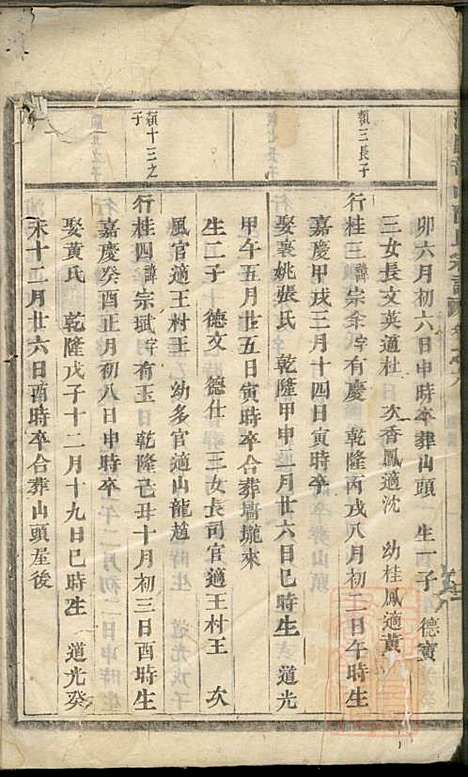 卯六月初六日申時卒葬山頭 生一子 德寅
三女長文英適杜 次香鳳適沈 幼桂鳳適黃
額三長子
行桂三諱宗余字有慶 乾隆丙戌八月初二日午時生
嘉慶甲戌三月十四日寅時卒
娶裘姚張氏 乾隆甲申二月廿六日巳時生 道光
甲午五月廿五日寅時卒合葬墻壠來
生二子 德文 德仕 三女長司官適王村王 次
風官適王村王 幼多官適山龍趙
額十三之子
行桂四諱宗珷字有玉 乾隆己丑十月初三日酉時生
嘉慶癸酉正月初八日申時卒
娶黃氏 乾隆戊子十二月十九日巳時生 道光癸
未十二月廿六日酉時卒合葬山頭屋後